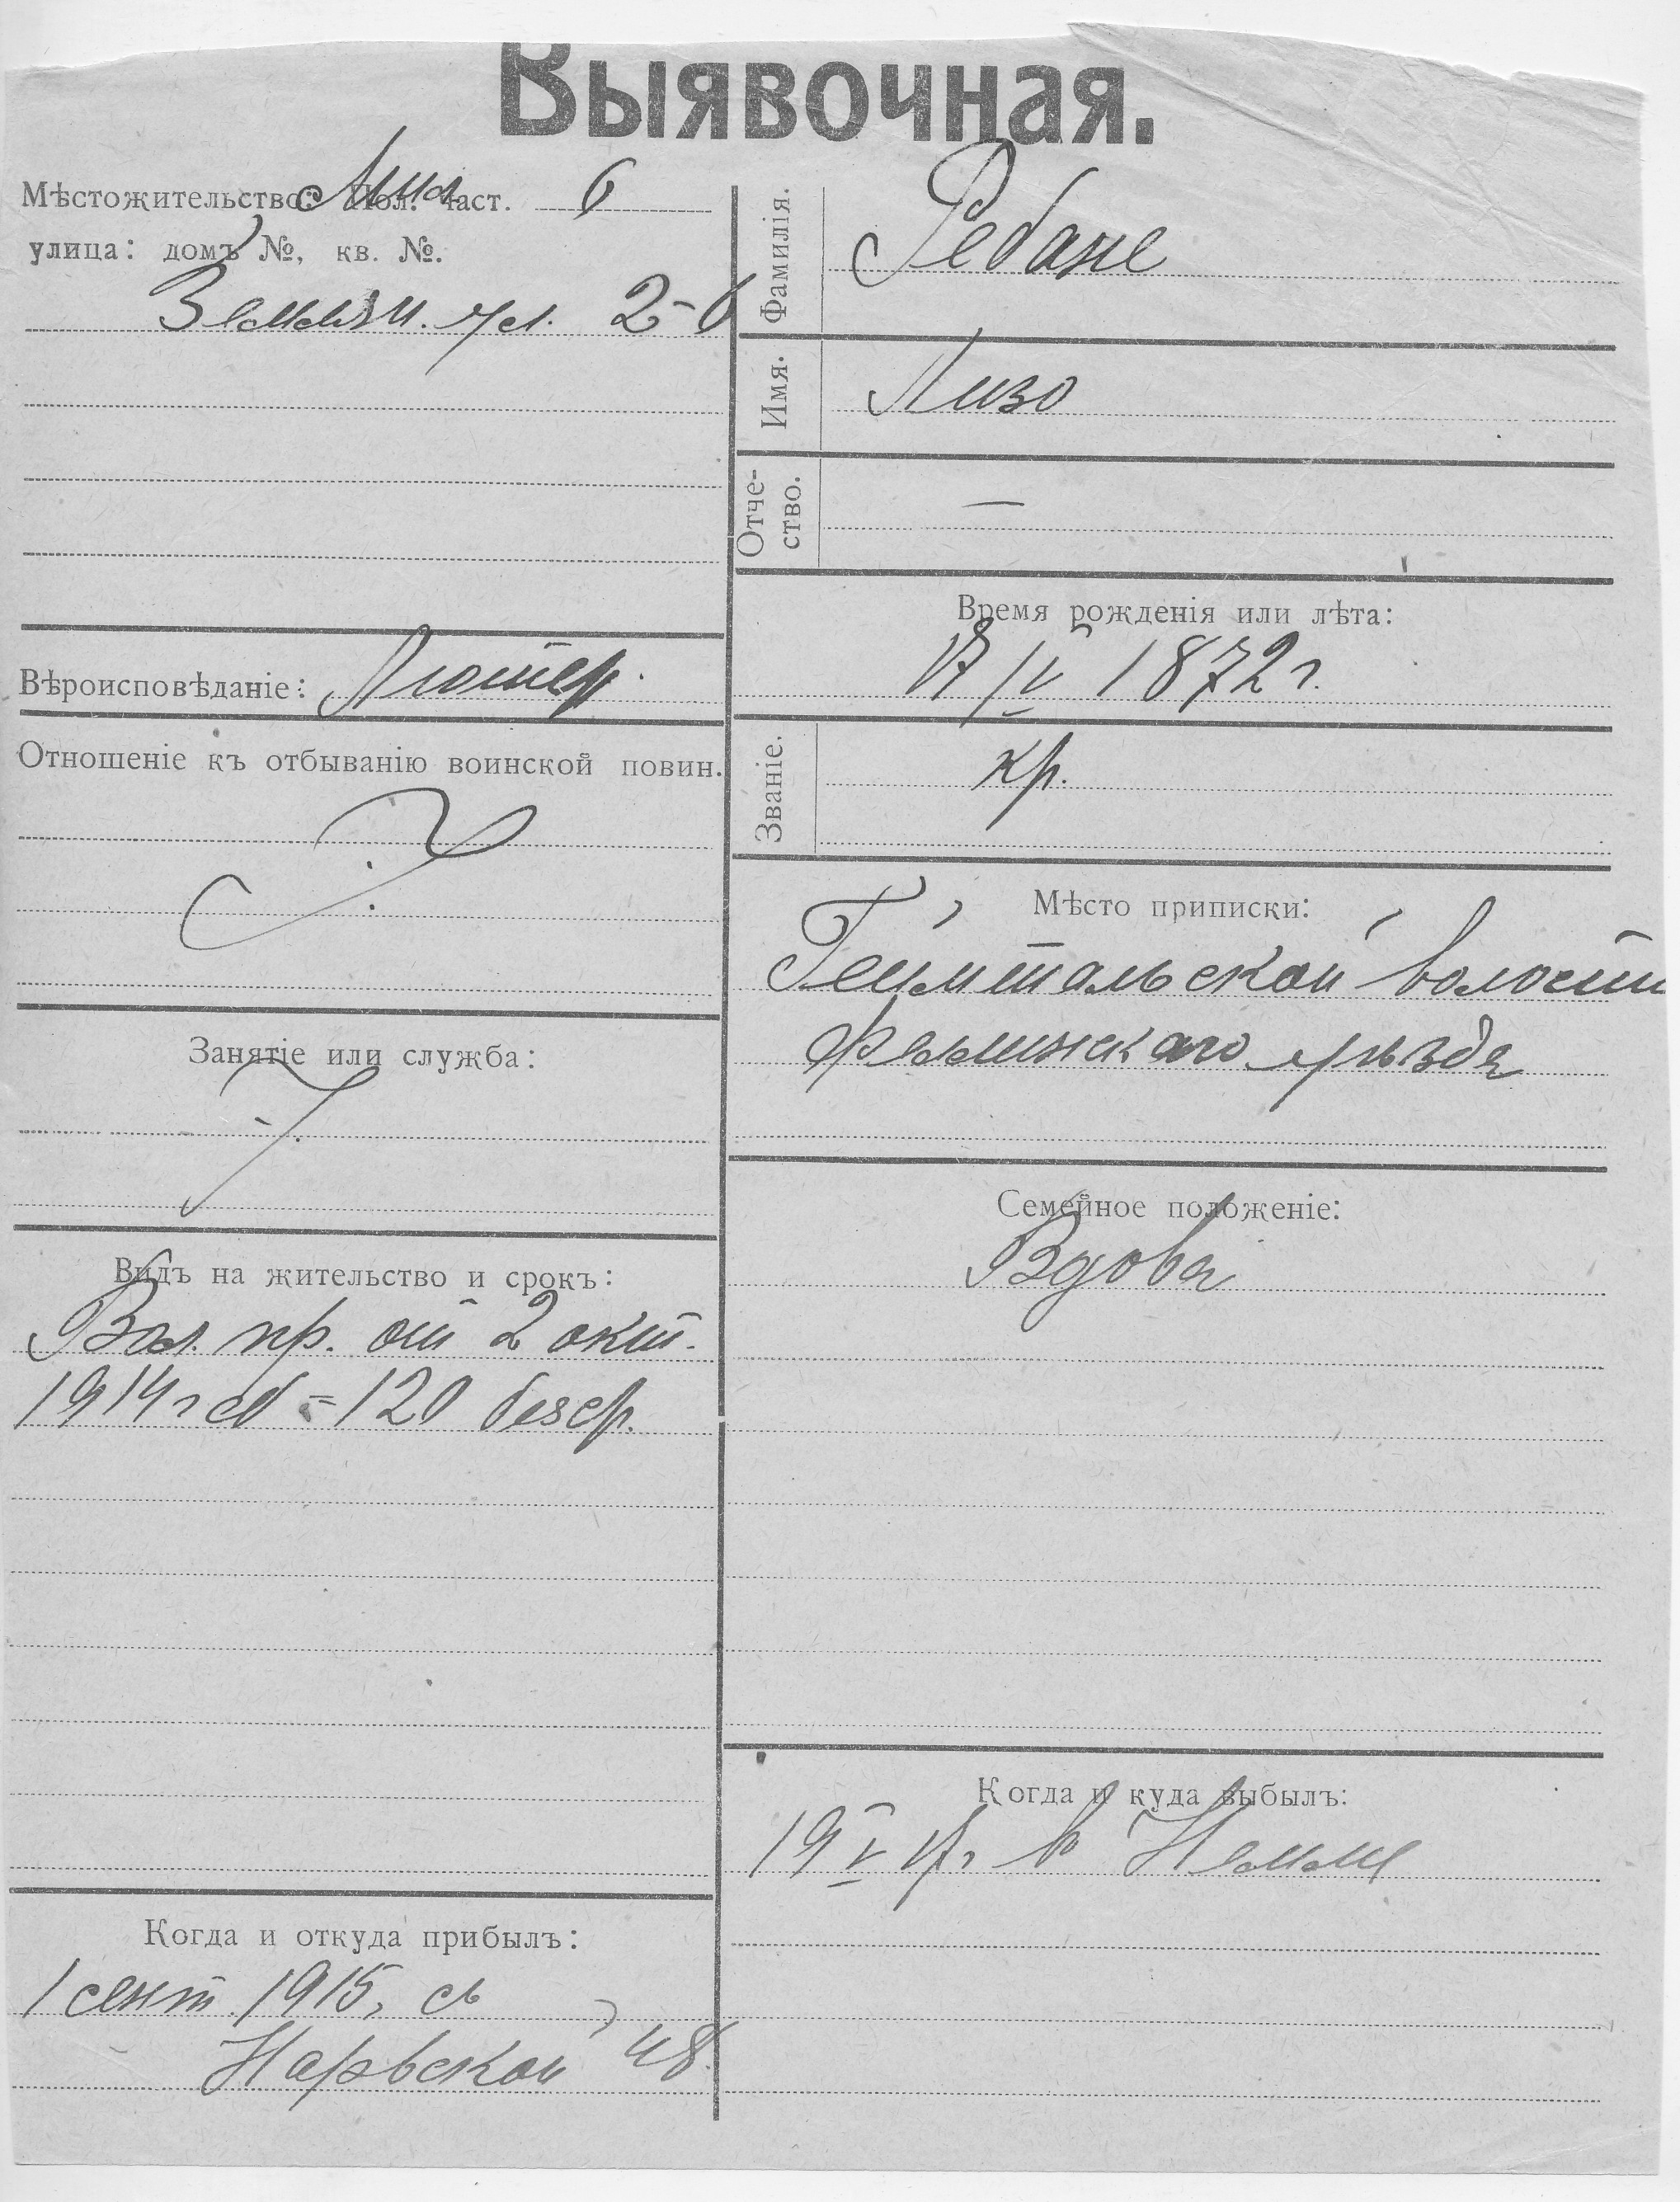 Выявочная.
Мѣстожительство: Пол. част. 6
улица: домъ №, кв. №.
ул. 2-6
Вѣроисповѣданіе: Лютер.
Отношеніе къ отбыванію воинской повин.
Занятіе или служба:
Видъ на жительство и срокъ:
Вол. пр. от 2 окт.
1914 г 120 безср.
Когда и откуда прибылъ:
1 сент. 1915, съ
Нарвской 48.
Фамилія. Ребане
Имя. Лизо
Отче-
ство. —
Время рожденія или лѣта:
17/V 1872 г.
Званіе. кр.
Мѣсто приписки:
Геймтальской волости
Феллинскаго уѣзда
Семейное положеніе:
Вдова
Когда и куда выбылъ:
19 V 17 г. в Немме